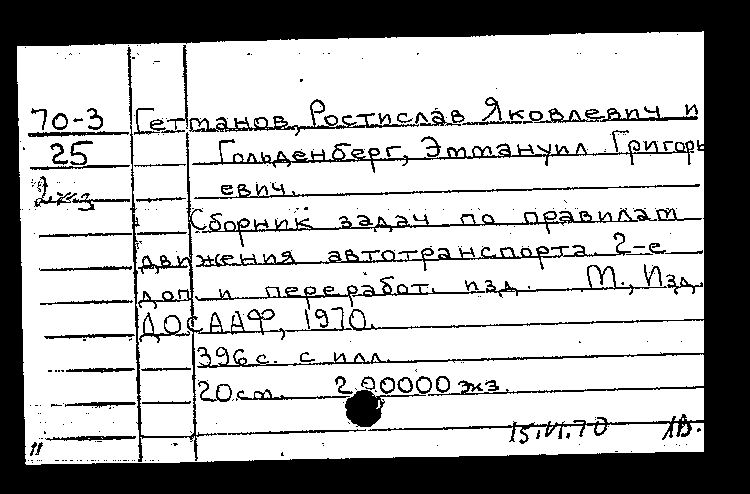 70-3 Гетманов, Ростислав Яковлевич и
25 Гольденберг, Эммануил Григорь
2 экз евич.
Сборник задач по правилам
движения автотранспорта. 2-е
доп. и переработ. изд. М., Изд.
ДОСААФ, 1970.
396 с. с илл.
20 см. 200000 экз.
15.VI.70 1В.
11